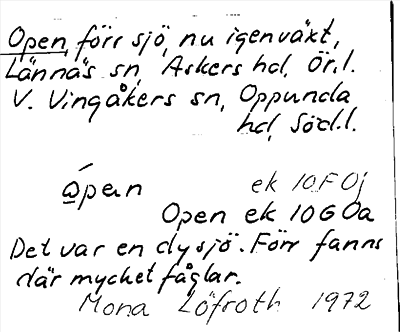 Open, förr sjö, nu igenväxt,
Lännäs sn, Askers hd, Ör.l.
V. Vingåkers sn, Oppunda
hd, Söd.l.
ópen ek 10F0j
Open ek 10G0a
Det var en dysjö. Förr fanns
där mycket fåglar.
Mona Löfroth 1972